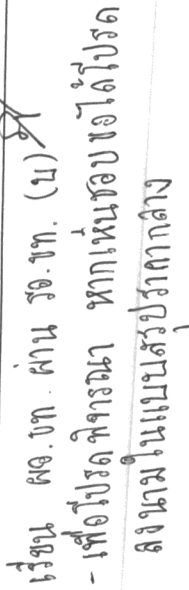 เรียน ผอ.ขท. ผ่าน รอ.ขท. (บ)
- เพื่อโปรดพิจารณา หากเห็นชอบขอได้โปรด
ลงนามในแบบสรุปราคากลาง